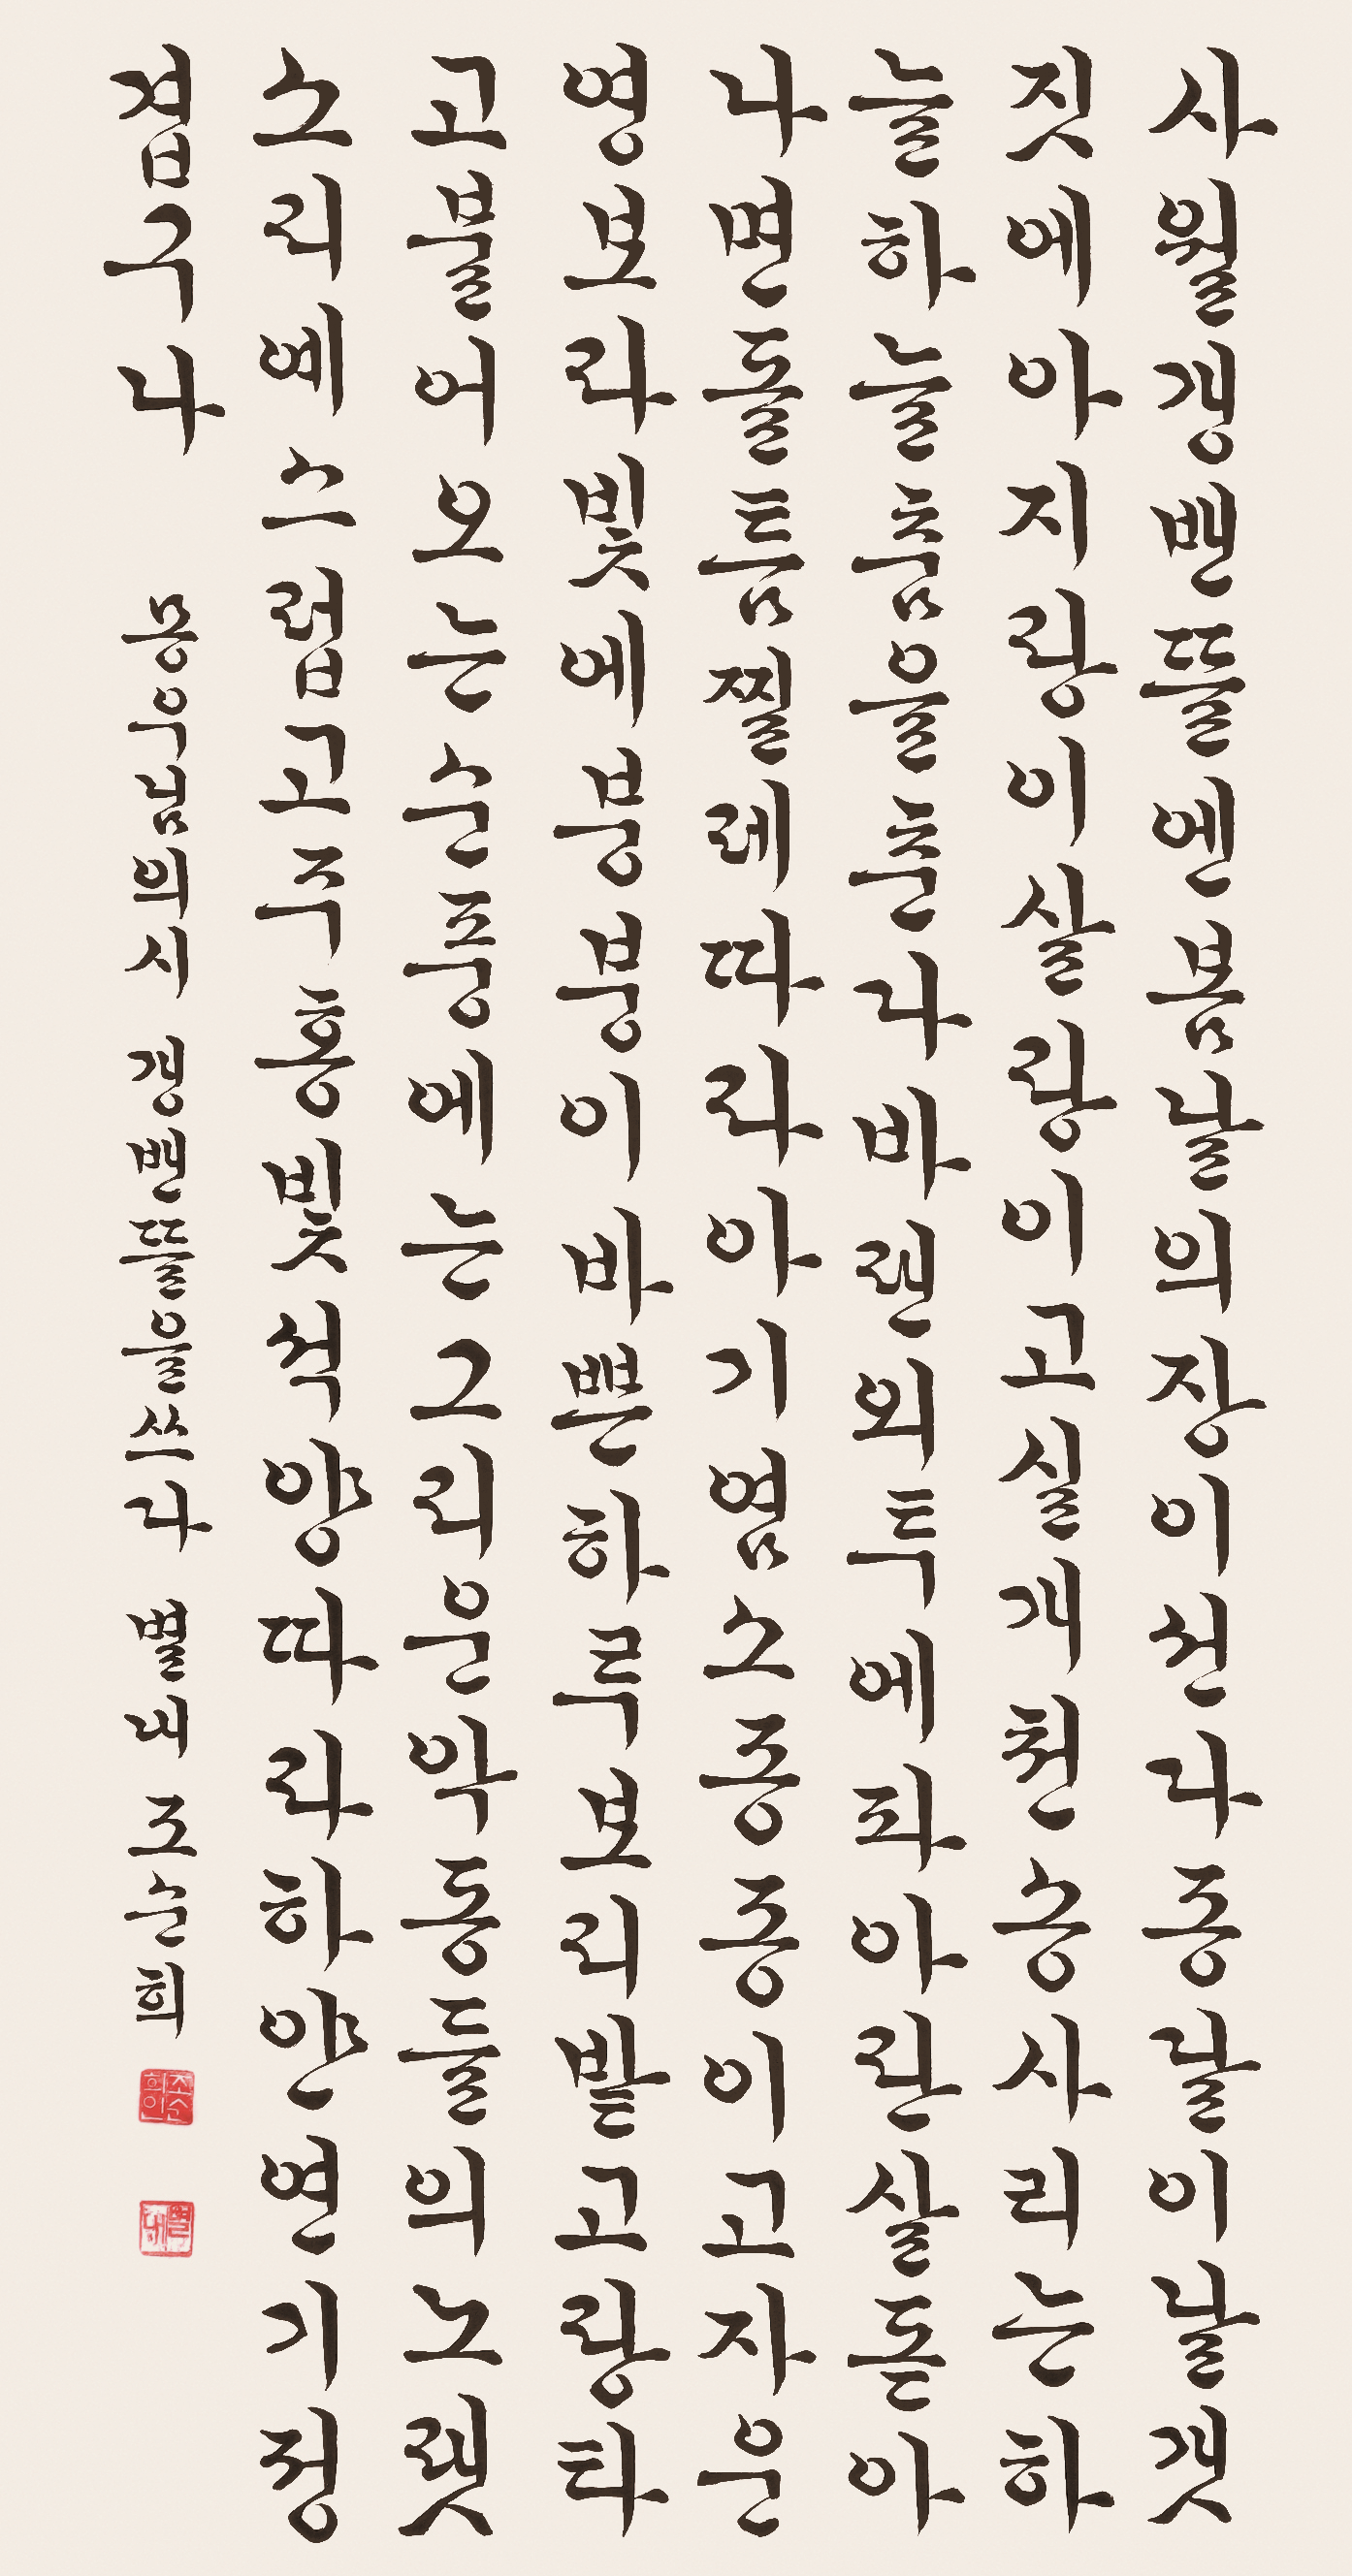 사월갱밴뜰엔봄날의장이선다종날이날갯
짓에아지랑이살랑이고실개천송사리는하
늘하늘춤을춘다바랜외투에파아란살돋아
나면돌틈찔레따라아기염소종종이고자운
영보라빛에붕붕이바쁜하루보리밭고랑타
고불어오는순풍에는그리운악동들의노랫
소리예스럽고주홍빛석양따라하얀연기정
겹구나
몽우님의시 갱밴뜰을쓰다 별내 조순희